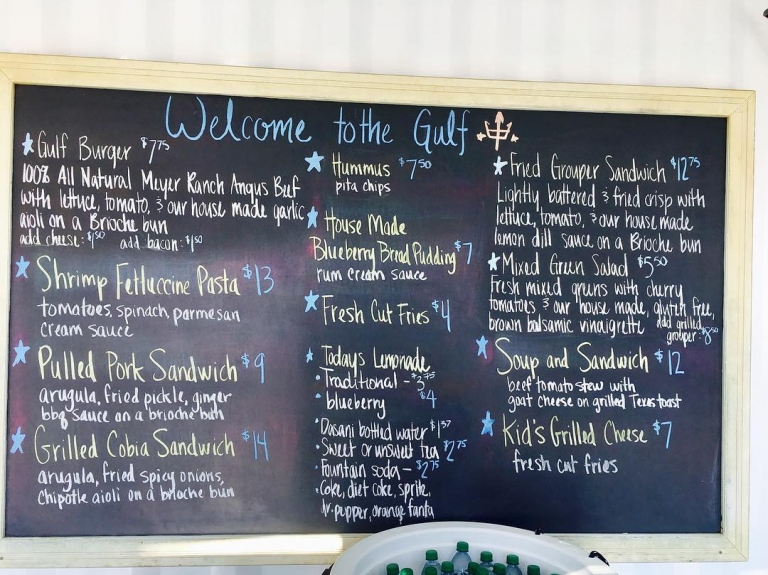 Welcome to the Gulf
Gulf Burger $7.75
100% All Natural Meyer Ranch Angus Beef
with lettuce, tomato, & our house made garlic
aioli on a Brioche bun
add cheese: $1.50 add bacon: $1.50
Shrimp Fettuccine Pasta $13
tomatoes, spinach, parmesan
cream sauce
Pulled Pork Sandwich $9
arugula, fried pickle, ginger
bbq sauce on a brioche bun
Grilled Cobia Sandwich $14
arugula, fried spicy onions,
Chipotle aioli on a brioche bun
Hummus $7.50
pita chips
House Made
Blueberry Bread Pudding $7
rum cream sauce
Fresh Cut Fries $4
Todays Lemonade
Traditional - $3.75
blueberry $4
Dasani bottled water
Sweet or unsweet tea $2.75
Fountain soda - $2.75
Coke, diet coke, sprite,
dr. pepper, orange fanta
Fried Grouper Sandwich $12.75
Lightly battered & fried crisp with
lettuce, tomato, & our house made
lemon dill sauce on a Brioche bun
Mixed Green Salad $5.50
Fresh mixed greens with cherry
tomatoes & our house made, gluten free,
brown balsamic vinaigrette add grilled
grouper:
Soup and Sandwich $12
beef tomato stew with
goat cheese on grilled Texas toast
Kid's Grilled Cheese $7
fresh cut fries